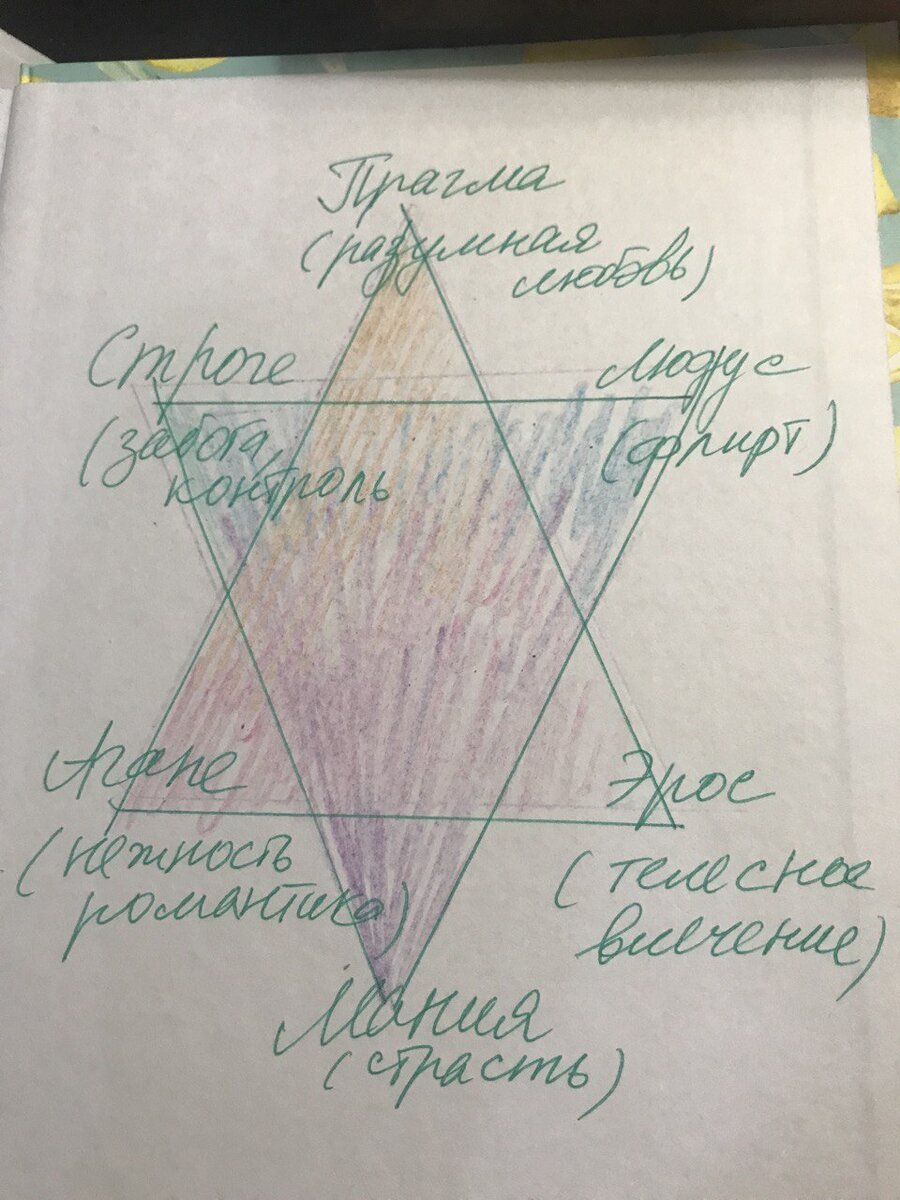 Прагма
(разумная
любовь)
Строге
(забота,
контроль
Людус
(флирт)
Агапе
(нежность
романтика)
Эрос
(телесное
влечение)
Мания
(страсть)